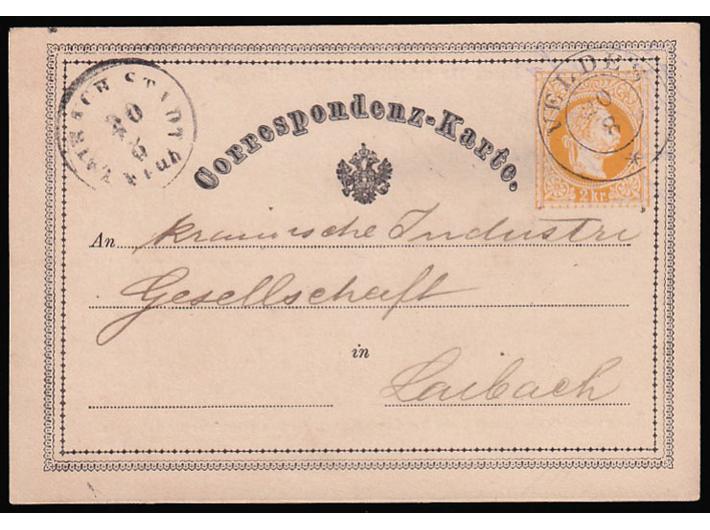 LAIBACH STADT
20
8
VELDES
20
8
*
Correspondenz-Karte.
2 Kr
An krainische Industrie
Gesellschaft
in
Laibach